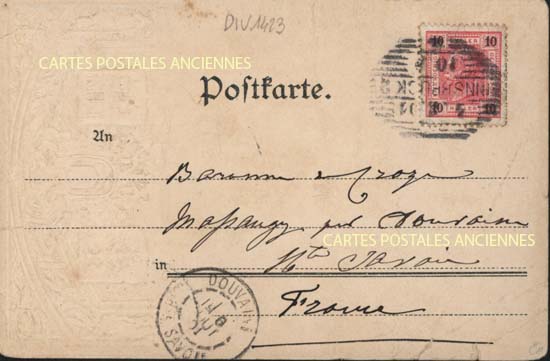 DIV1423
CARTES POSTALES ANCIENNES
10 10
HELLER
INNSBRUCK 2
Postkarte.
An
Baronne de Croze
par Douvaine
CARTES POSTALES ANCIENNES
in Hte Savoie
DOUVAINE
SAVOIE
France